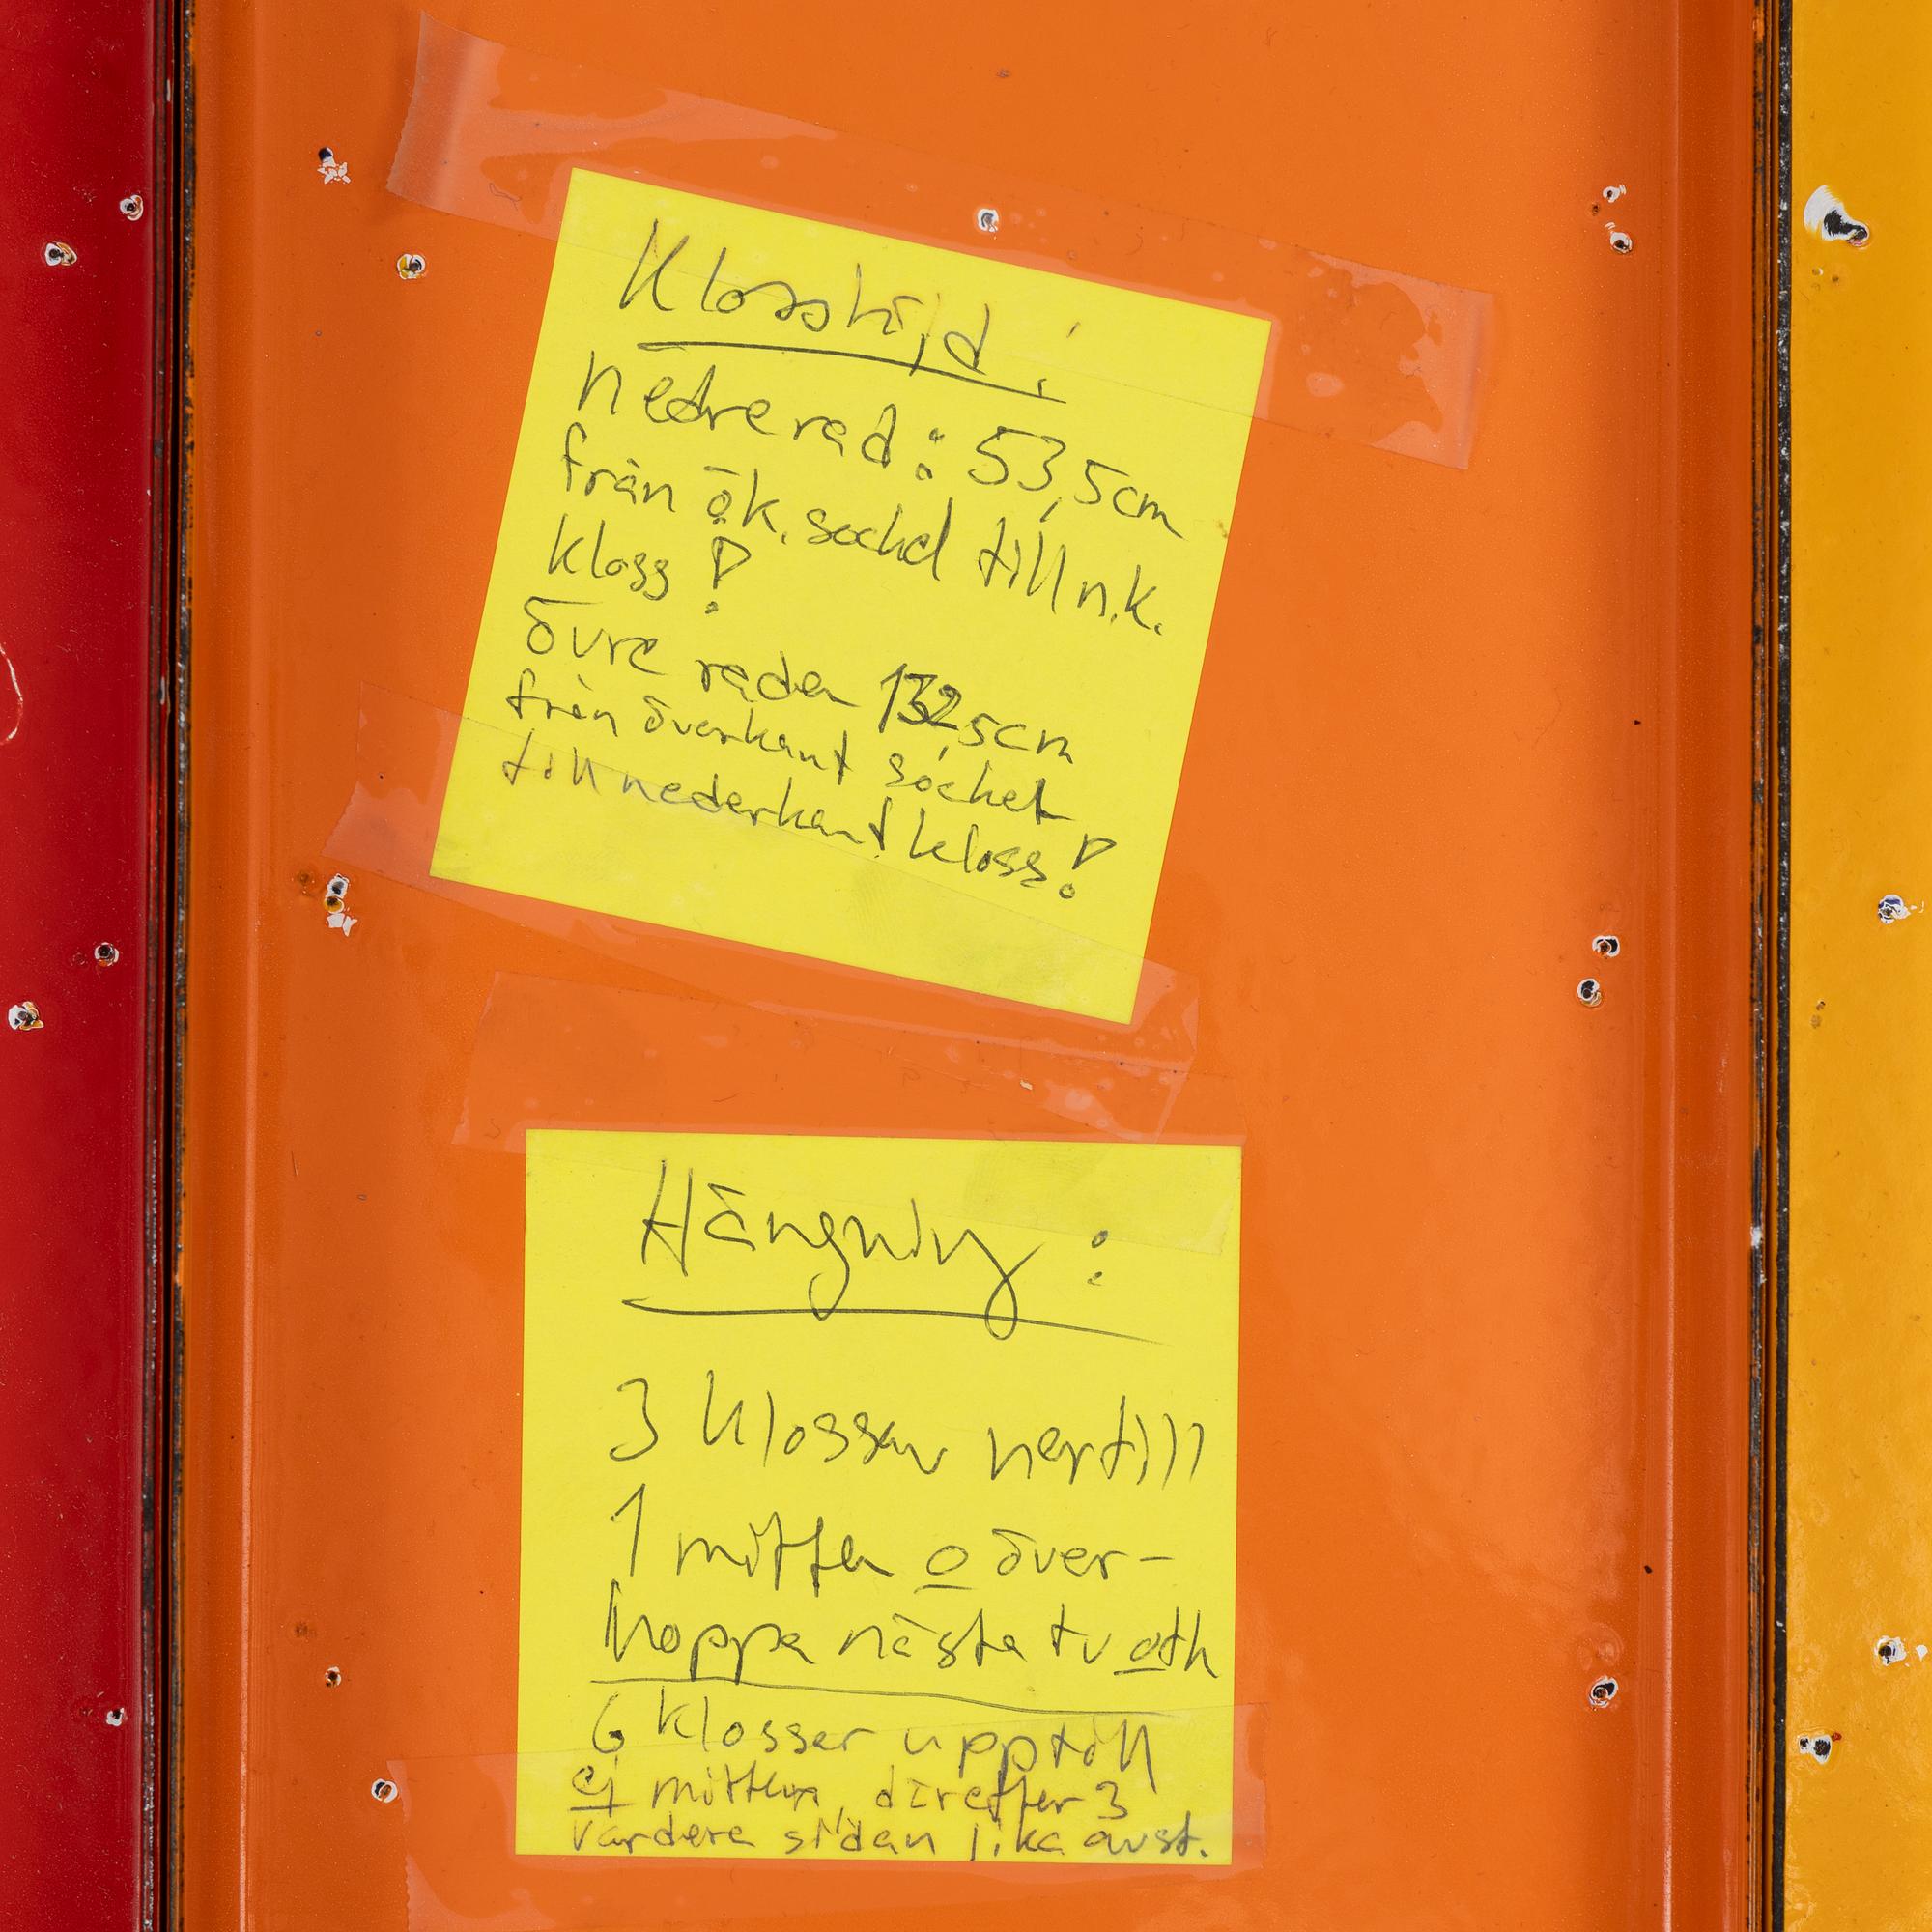 Klosshöjd:
nedre rad: 53,5cm
från ök. sockel till n.k.
kloss!
övre raden 132,5cm
från överkant sockel
till nederkant kloss!
Hängning:
3 klossar nertill
1 mitten o över-
hoppa nästa tv oth
6 klosser upptill
ej mitten, därefter 3
vardera sidan lika avst.